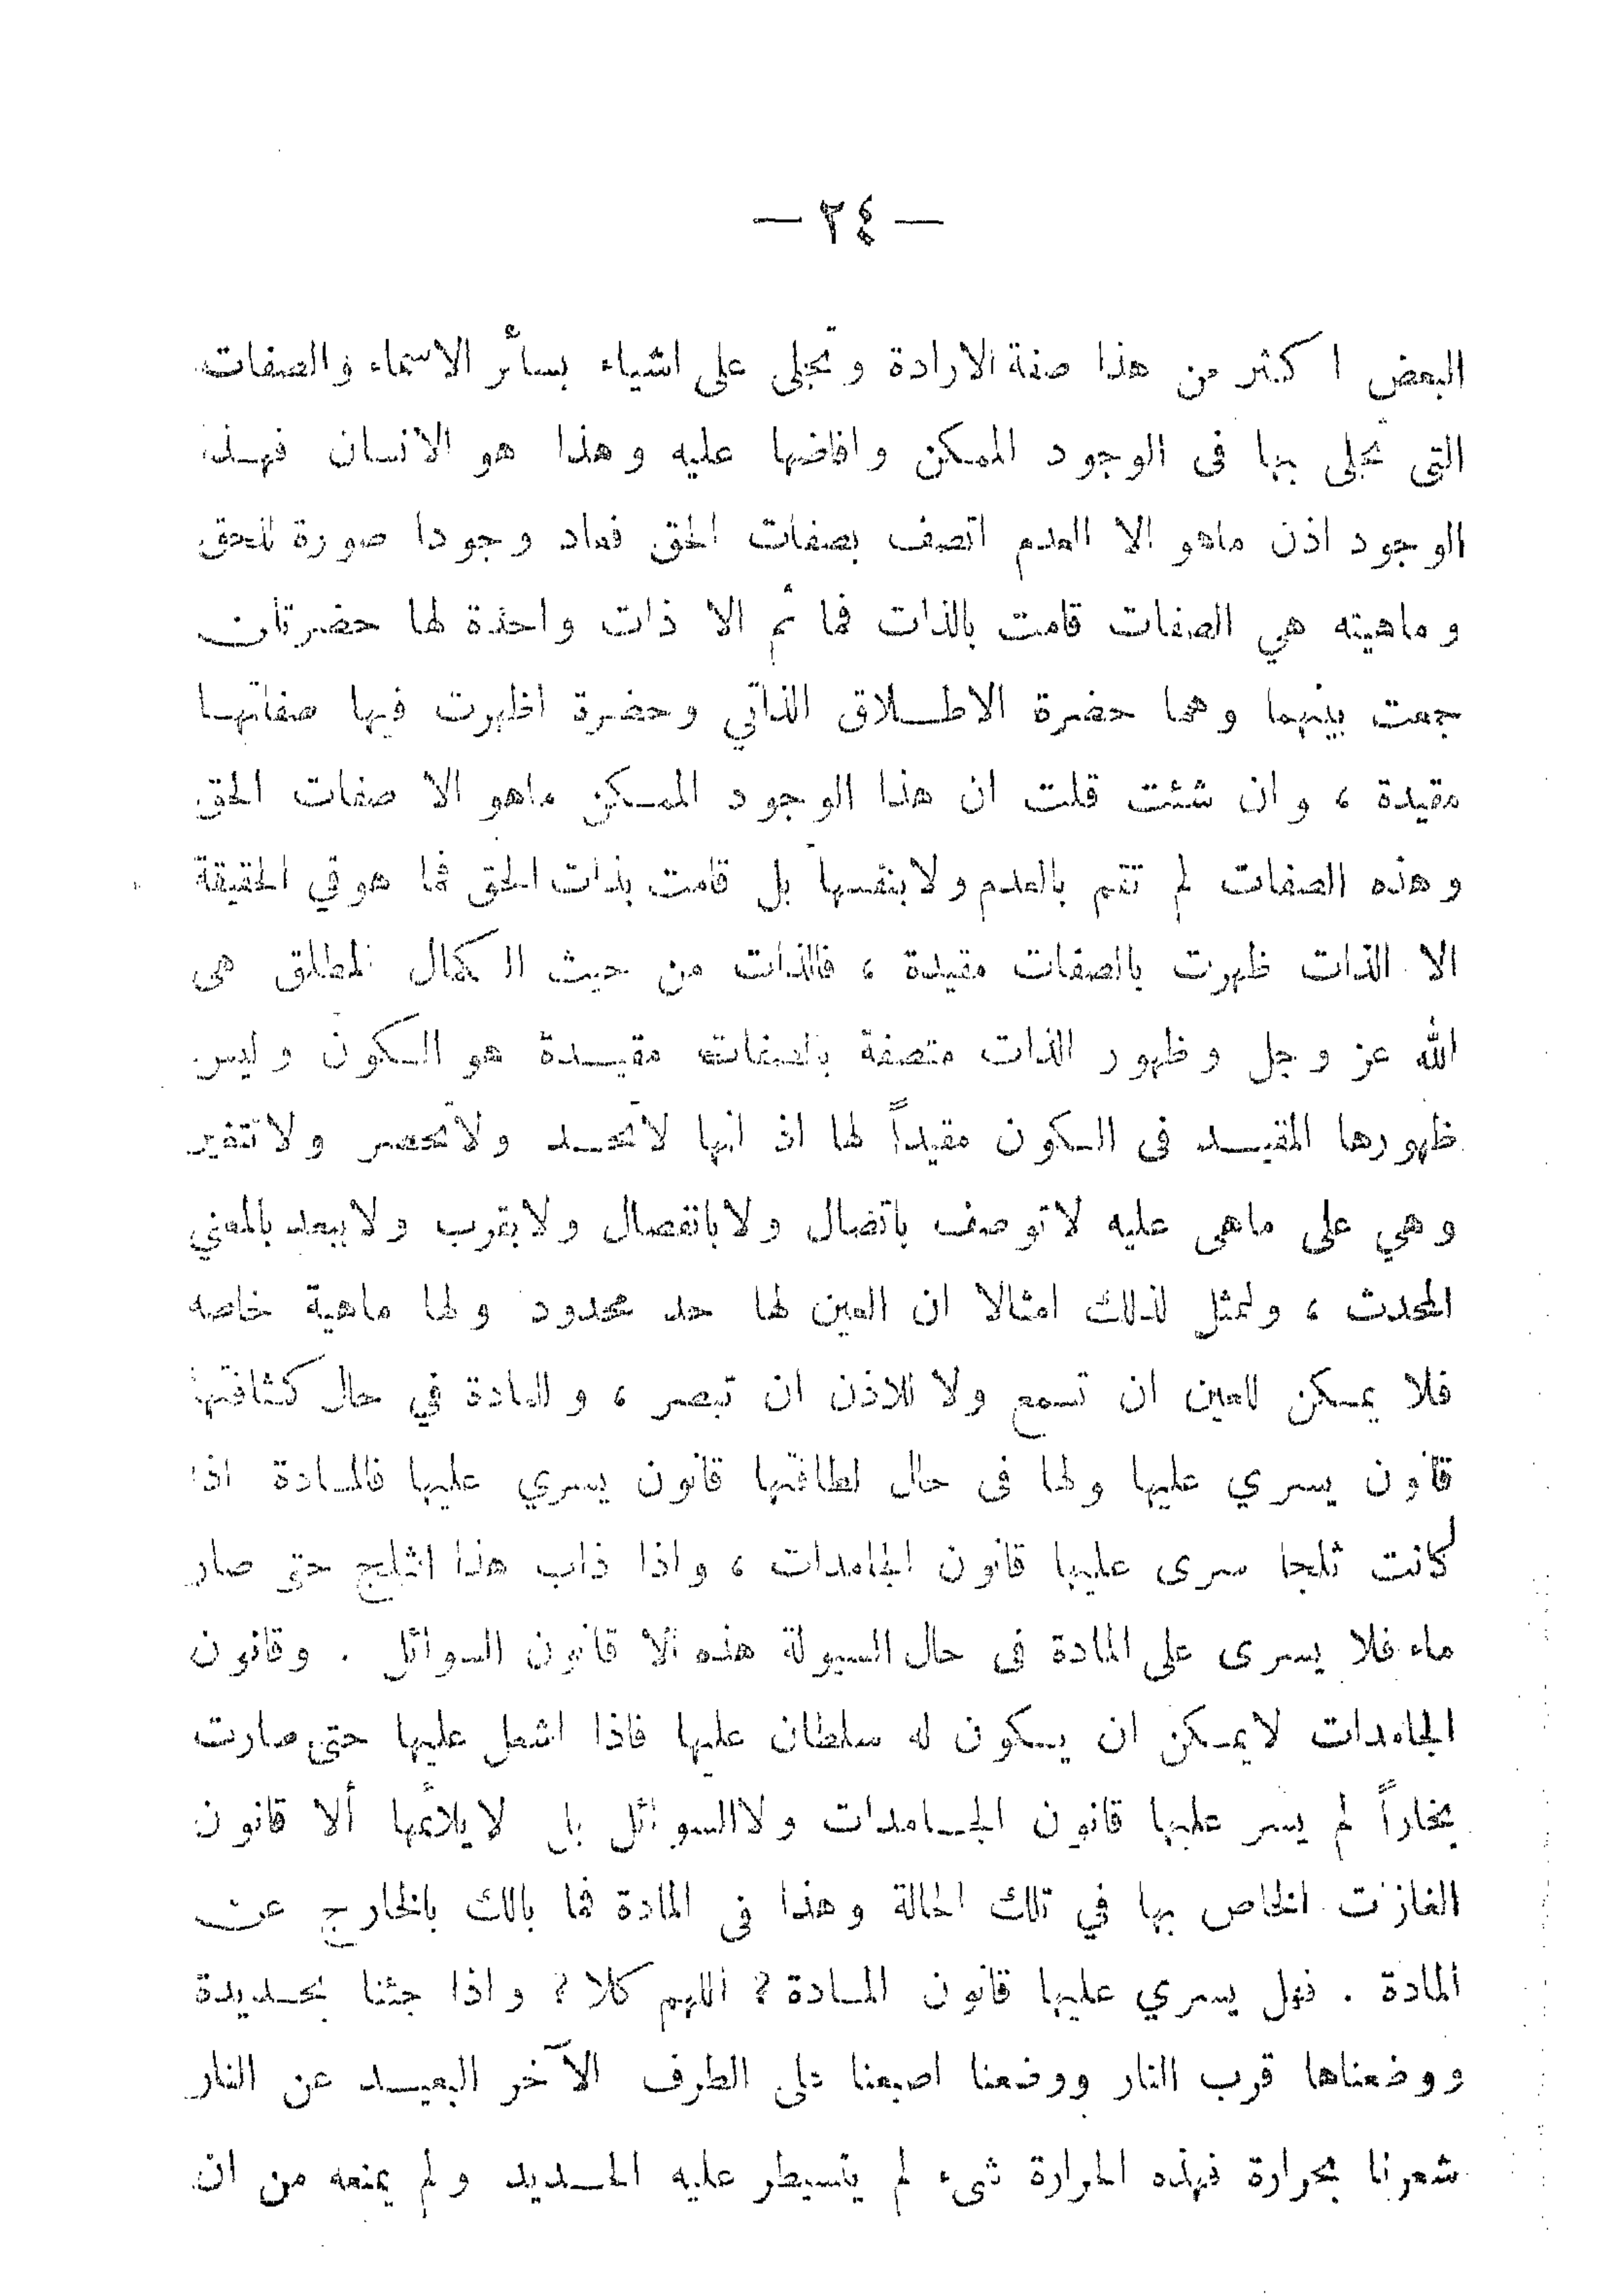 — ٢٤ —
البعض اكثر من هذا صفة الارادة وتجلى على اشياء بسائر الاسماء والصفات
التى تجلى بها فى الوجود الممكن وافاضها عليه وهذا هو الانسان فهذا
الوجود اذن ماهو الا العدم اتصف بصفات الحق فعاد وجودا صورة للحق
وماهيته هي الصفات قامت بالذات فما ثم الا ذات واحدة لها حضرتان
جمعت بينهما وهما حضرة الاطلاق الذاتي وحضرة اظهرت فيها صفاتها
مقيدة ، وان شئت قلت ان هذا الوجود الممكن ماهو الا صفات الحق
وهذه الصفات لم تقم بالعدم ولابنفسها بل قامت بذات الحق فما هو في الحقيقة
الا الذات ظهرت بالصفات مقيدة ، فالذات من حيث الكمال المطلق هى
الله عز وجل وظهور الذات متصفة بالصفات مقيدة هو الكون وليس
ظهورها المقيد فى الكون مقيداً لها اذ انها لاتحد ولاتحصر ولاتتغير
وهي على ماهى عليه لاتوصف باتصال ولابانفصال ولابقرب ولاببعد بالمعني
المحدث ، ولنمثل لذلك امثالا ان العين لها حد محدود ولها ماهية خاصه
فلا يمكن للعين ان تسمع ولا للاذن ان تبصر ، وللمادة في حال كثافتها
قانون يسري عليها ولها فى حال لطافتها قانون يسري عليها فالمادة اذا
كانت ثلجا سرى عليها قانون الجامدات ، واذا ذاب هذا الثلج حتى صار
ماء فلا يسرى على المادة فى حال السيولة هذه الا قانون السوائل . وقانون
الجامدات لايمكن ان يكون له سلطان عليها فاذا اشعل عليها حتى صارت
بخاراً لم يسر عليها قانون الجامدات ولاالسوائل بل لايلائمها ألا قانون
الغازت الخاص بها في تلك الحالة وهذا فى المادة فما بالك بالخارج عن
المادة . فهل يسري عليها قانون المادة ? اللهم كلا ? واذا جئنا بحديدة
ووضعناها قرب النار ووضعنا اصبعنا على الطرف الآخر البعيد عن النار
شعرنا بحرارة فهذه الحرارة شىء لم يتسيطر عليه الحديد ولم يمنعه من ان